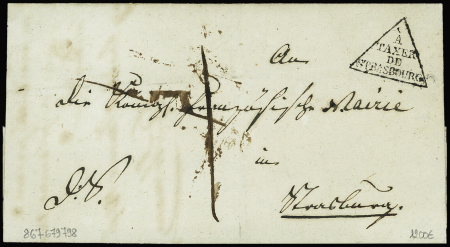 A
TAXER
DE
STRASBOURG
An
die Königl. Französische Mairie
in
Strasburg.
1
867-679798
1200€